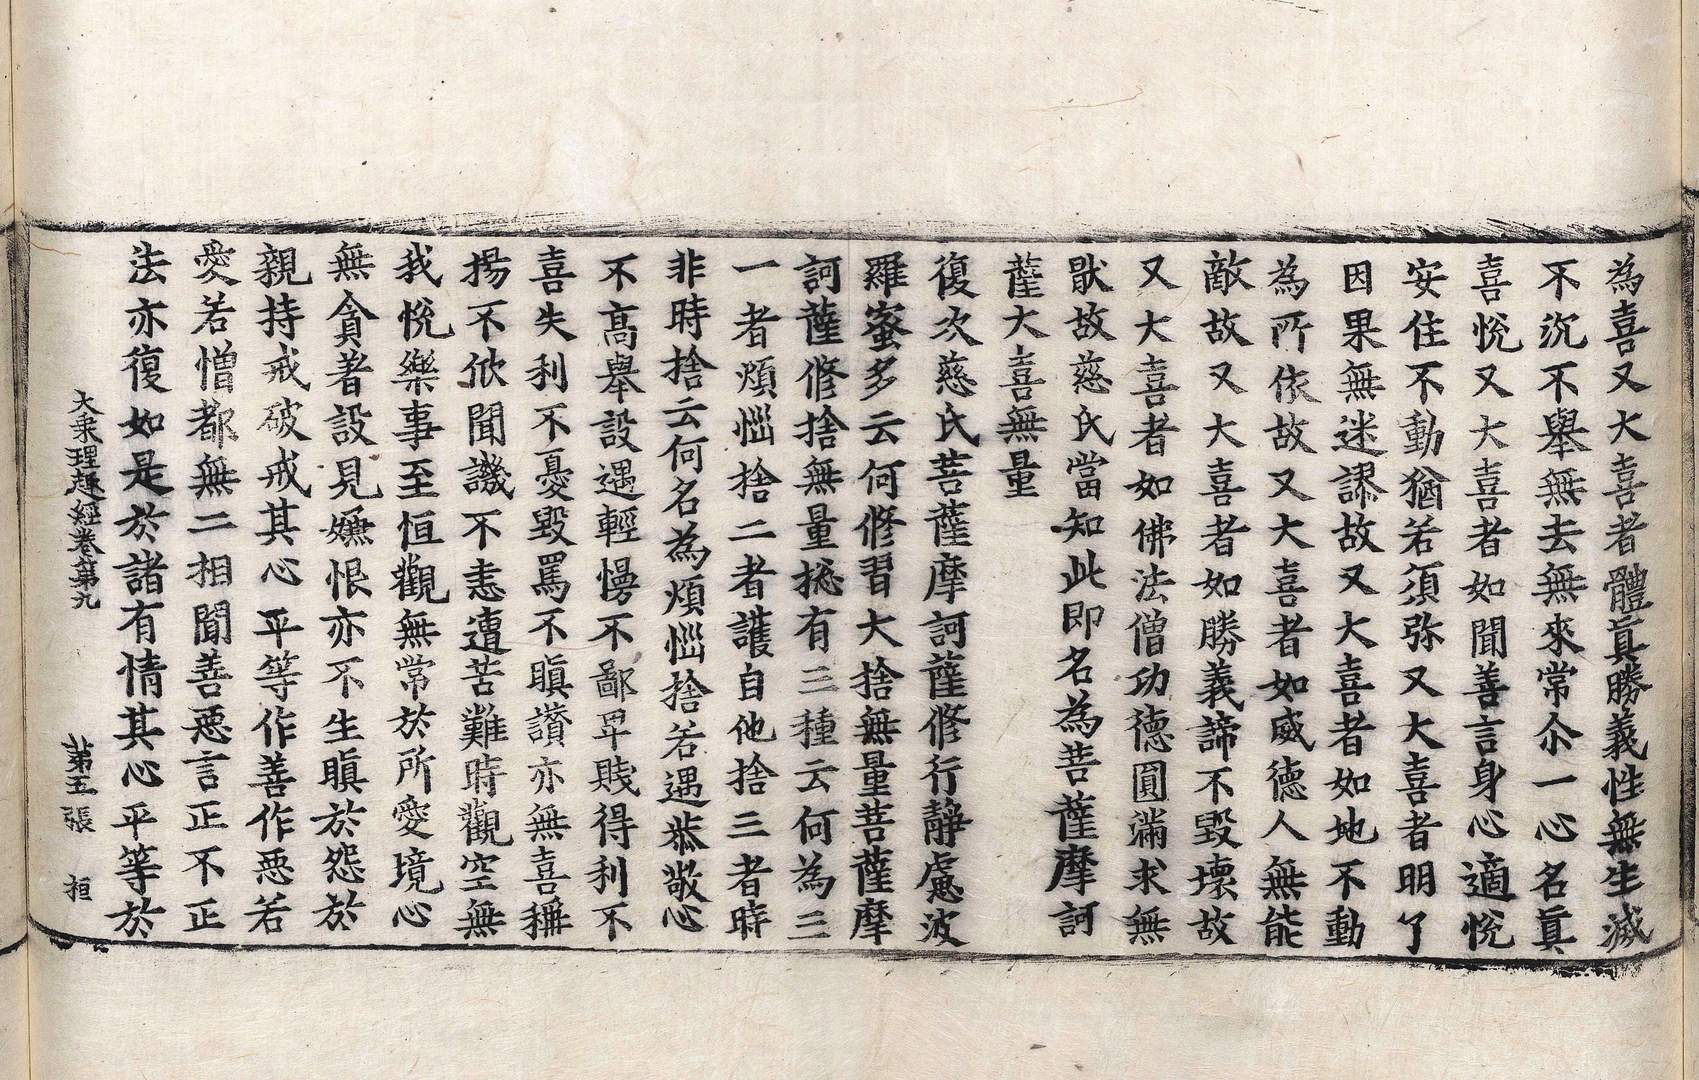 為喜又大喜者體真勝義性無生滅
不沉不舉無去無來常尒一心名真
喜悅又大喜者如聞善言身心適悅
安住不動猶若須弥又大喜者明了
因果無迷謬故又大喜者如地不動
為所依故又大喜者如威德人無能
敵故又大喜者如勝義諦不毀壞故
又大喜者如佛法僧功德圓滿求無
猒故慈氏當知此即名為菩薩摩訶
薩大喜無量
復次慈氏菩薩摩訶薩修行靜慮波
羅蜜多云何修習大捨無量菩薩摩
訶薩修捨無量揔有三種云何為三
一者煩惱捨二者護自他捨三者時
非時捨云何名為煩惱捨若遇恭敬心
不高舉設遇輕慢不鄙卑賤得利不
喜失利不憂毀罵不瞋讚亦無喜稱
揚不欣聞譏不恚遭苦難時觀空無
我悅樂事至恒觀無常於所愛境心
無貪著設見嫌恨亦不生瞋於怨於
親持戒破戒其心平等作善作惡若
愛若憎都無二相聞善惡言正不正
法亦復如是於諸有情其心平等於
大乘理趣經卷第九 第五張 桓